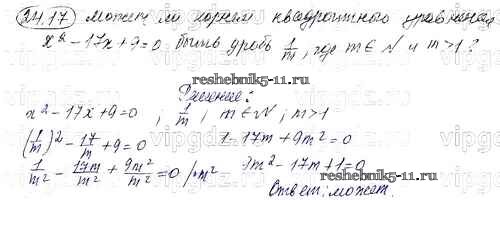 24.17 может ли корнем квадратного уравнения
x² - 17x + 9 = 0 быть дробь 1/m, где m ∈ N и m > 1?
reshebnik5-11.ru
Решение:
x² - 17x + 9 = 0, 1/m, m ∈ N; m > 1
(1/m)² - 17/m + 9 = 0 1 - 17m + 9m² = 0
1/m² - 17m/m² + 9m²/m² = 0 /·m² 9m² - 17m + 1 = 0
Ответ: может.
reshebnik5-11.ru